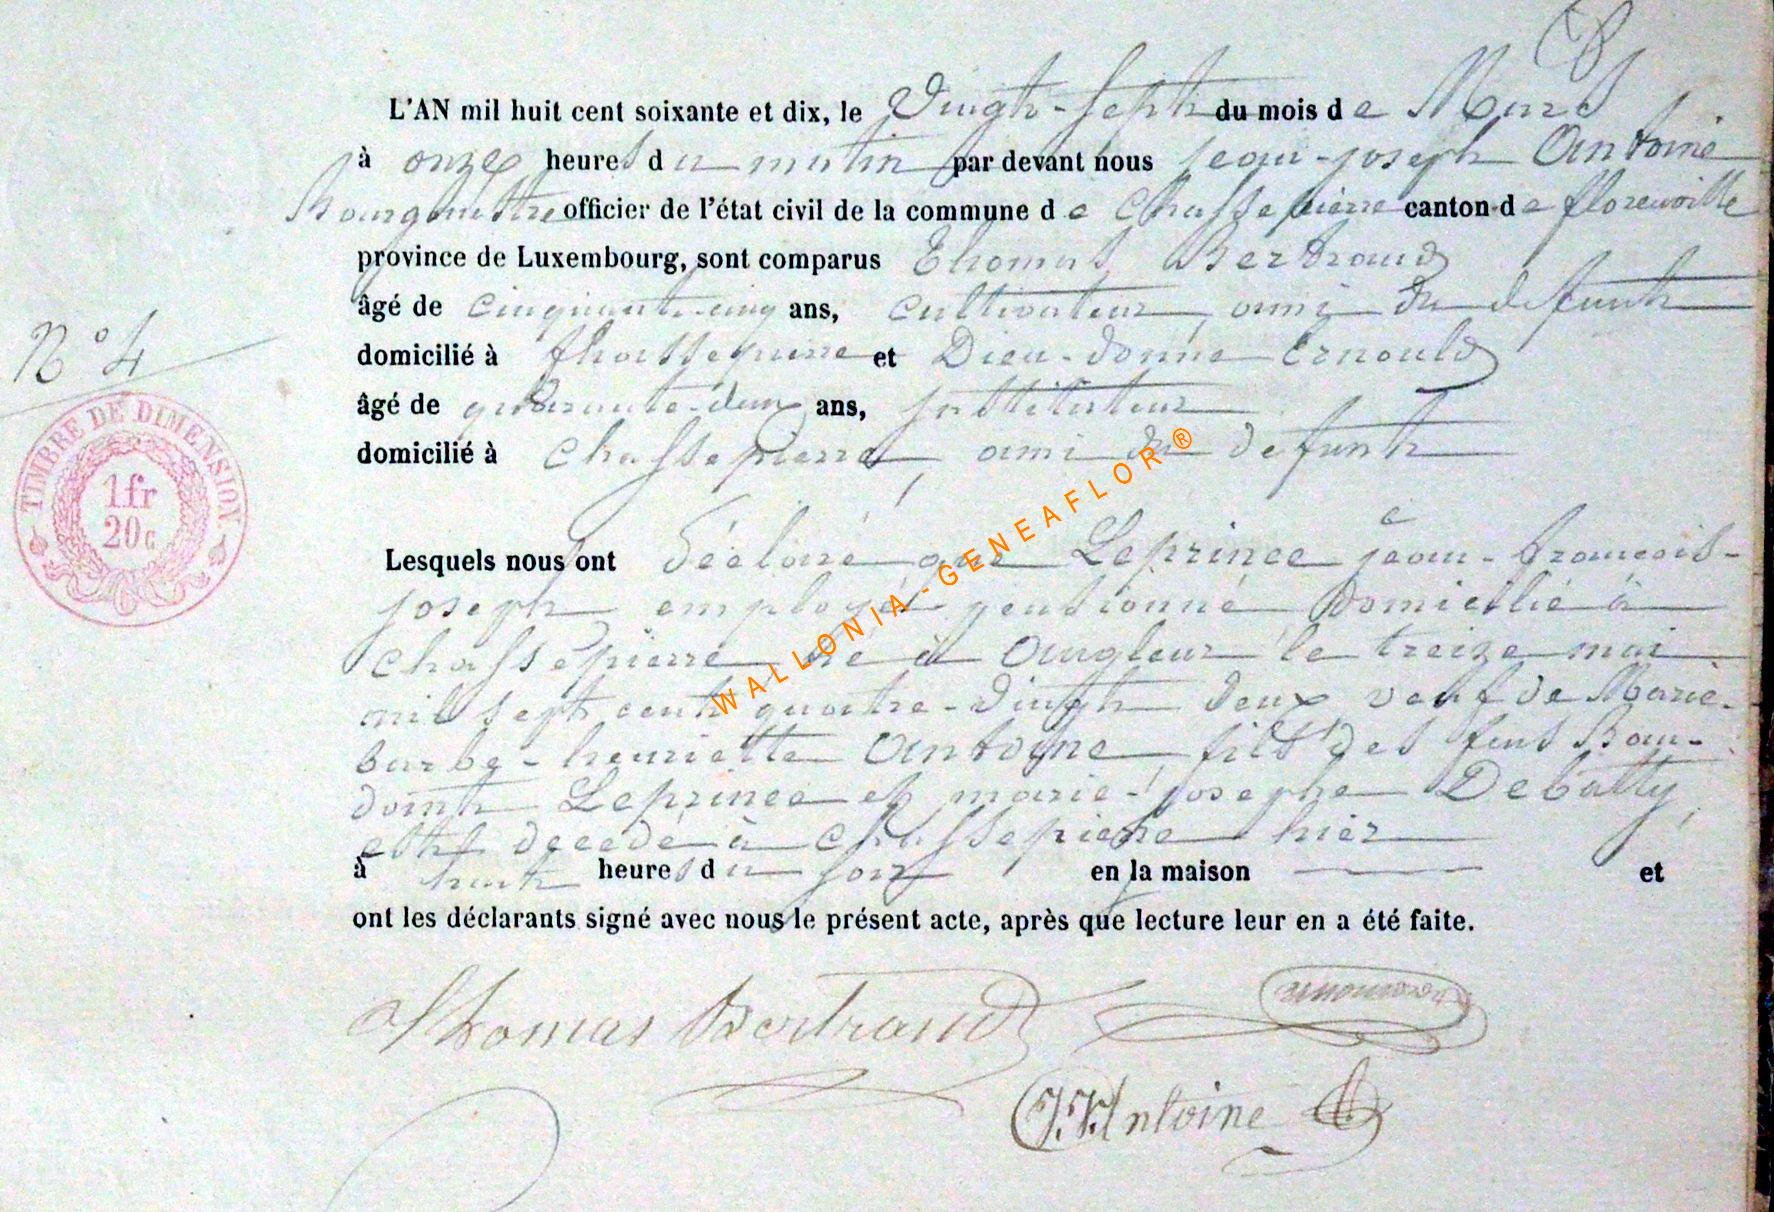 L'AN mil huit cent soixante et dix, le Vingt-Sept du mois de Mars
à onze heures du matin par devant nous jean-joseph Antoine
Bourgmestre officier de l'état civil de la commune de Chassepierre canton de florenville
province de Luxembourg, sont comparus Thomas Bertrand
âgé de cinquante-cinq ans, cultivateur, ami du défunt
N° 4
domicilié à Chassepierre et Dieu-donné Ernould
âgé de quarante-deux ans, instituteur
domicilié à Chassepierre, ami du défunt
TIMBRE DE DIMENSION
1fr
20c
WALLONIA-GENEAFLOR®
Lesquels nous ont déclaré que Leprince jean-françois-
joseph employé pensionné domicilié à
Chassepierre né à Angleur le treize mai
mil sept cent quatre-vingt deux veuf de Marie-
barbe-henriette Antoine, fils des feus Bau-
douin Leprince et marie-josephe Debatty,
est décédé à Chassepierre hier
à huit heures du soir en la maison et
ont les déclarants signé avec nous le présent acte, après que lecture leur en a été faite.
Thomas Bertrand
J.J. Antoine